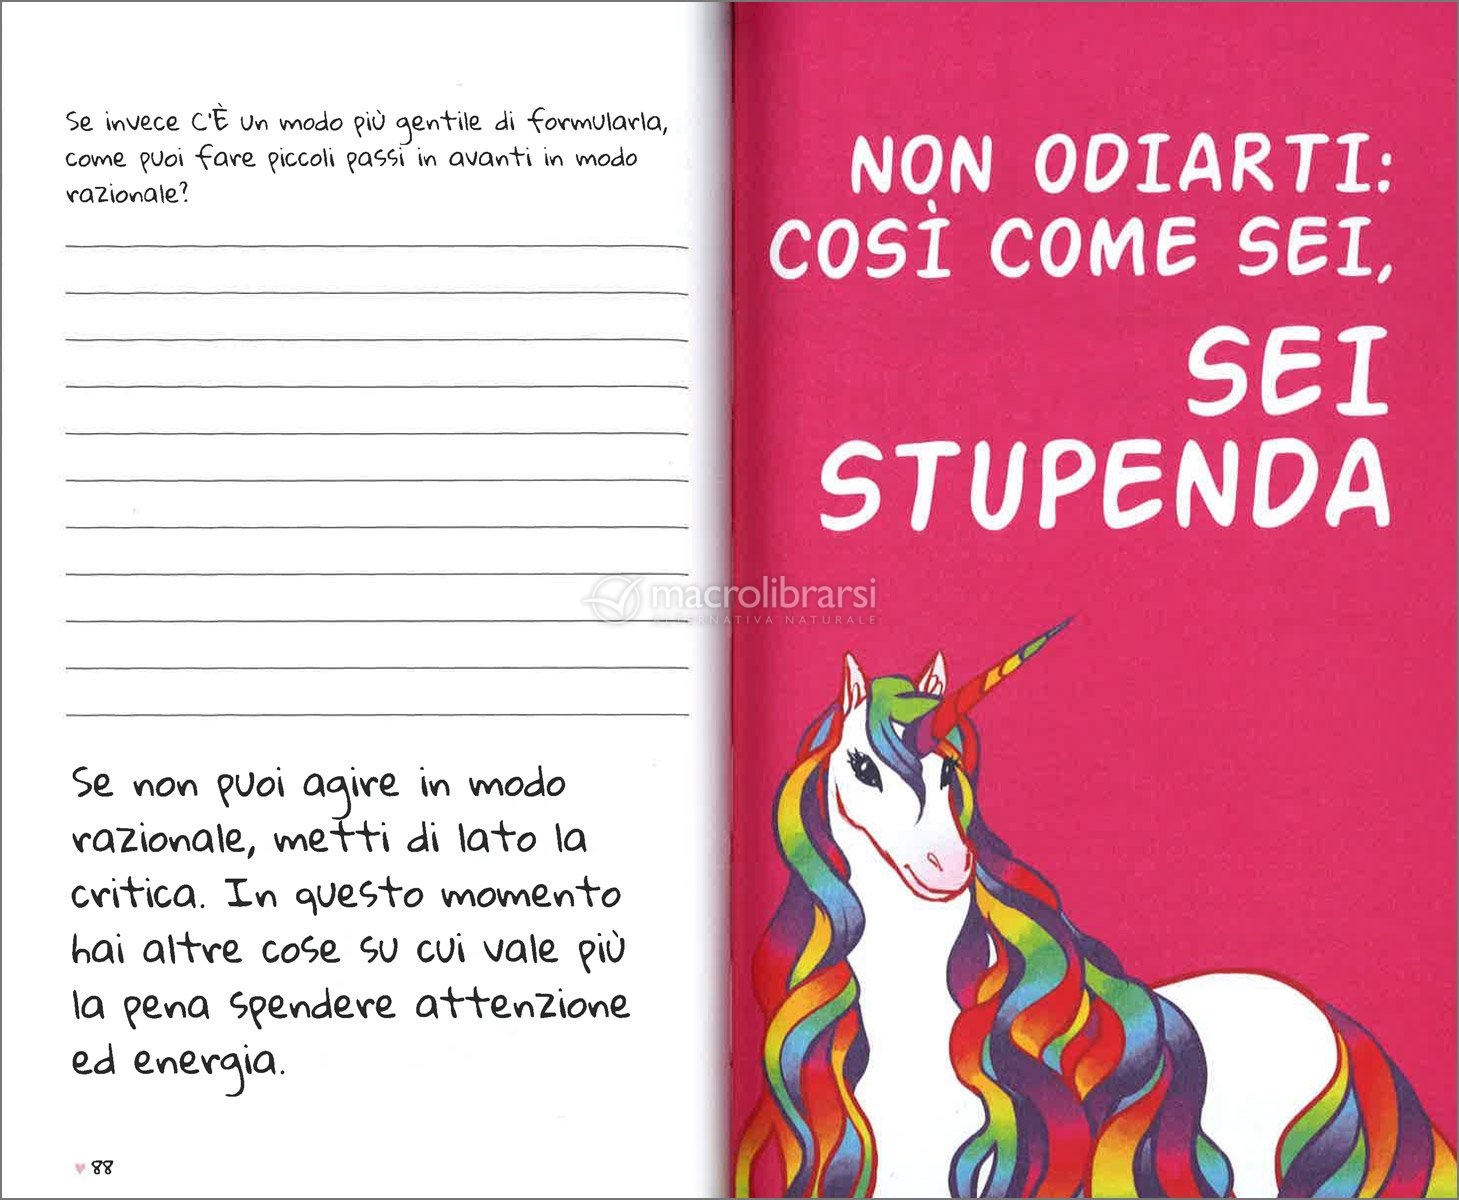 Se invece C'È un modo più gentile di formularla,
come puoi fare piccoli passi in avanti in modo
razionale?
Se non puoi agire in modo
razionale, metti di lato la
critica. In questo momento
hai altre cose su cui vale più
la pena spendere attenzione
ed energia.
88
NON ODIARTI:
COSÌ COME SEI,
SEI
STUPENDA
macrolibrarsi
ALTERNATIVA NATURALE